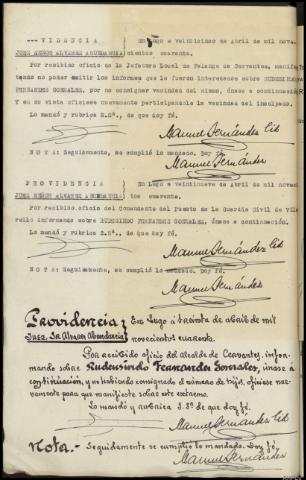 ---VIDENCIA En Lugo a veinticinco de Abril de mil nove-
JUEZ SEÑOR ALVAREZ ABUNDANCIA cientos cuarenta.
Por recibido oficio de la Jefatura Local de Falange de Cervantes, manifes
tando no poder emitir los informes que le fueron interesados sobre
FERNANDEZ GONZALEZ, por no consignar vecindad del mismo, únase a continuación
Y en su vista ofíciese nuevamente participándole la vecindad del inculpado.
Lo mandó y rubrica S.Sª., de que doy fé.
Manuel Fernández
NOTA: Seguidamente, se cumplió lo mandado. Doy fé.
Manuel Fernández
PROVIDENCIA En Lugo a veintinueve de Abril de mil noveci
JUEZ SEÑOR ALVAREZ ABUNDANCIA tos cuarenta.
Por recibido oficio del Comandante del Puesto de la Guardia Civil de
informe sobre RUDESINDO FERNANDEZ GONZALEZ, únase a continuación.
Lo mandó y rubrica S.Sª., de que doy fé.
Manuel Fernández
NOTA: Seguidamente, se cumplió lo mandado. Doy fé.
Manuel Fernández
Providencia En Lugo á treinta de abril de mil
Juez, Sr. Alvarez Abundancia novecientos cuarenta.
Por recibido oficio del Alcalde de Cervantes, infor-
mando sobre Rudensindo Fernandez Gonzales, únase á
continuación, y no habiendo consignado el número de hijos, ofíciese nue-
vamente para que manifieste sobre este extremo.
Lo mandó y rubrica S. Sª de que doy fé.
Manuel Fernández
Nota.- Seguidamente se cumplió lo mandado. Doy fé.
Manuel Fernández